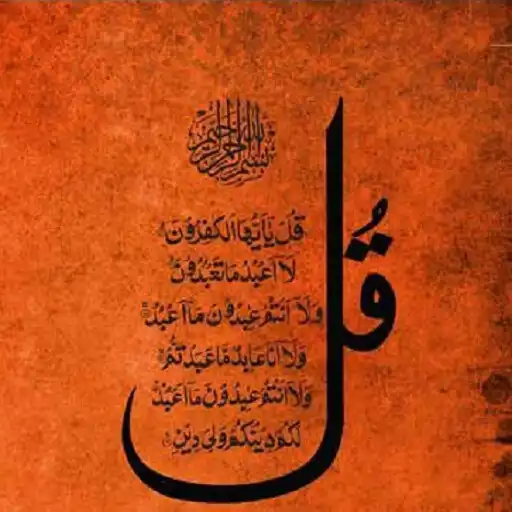 بسم الله الرحمن الرحيم
قل
قُلْ يَا أَيُّهَا الْكَافِرُونَ
لَا أَعْبُدُ مَا تَعْبُدُونَ
وَلَا أَنْتُمْ عَابِدُونَ مَا أَعْبُدُ
وَلَا أَنَا عَابِدٌ مَا عَبَدْتُمْ
وَلَا أَنْتُمْ عَابِدُونَ مَا أَعْبُدُ
لَكُمْ دِينُكُمْ وَلِيَ دِينِ